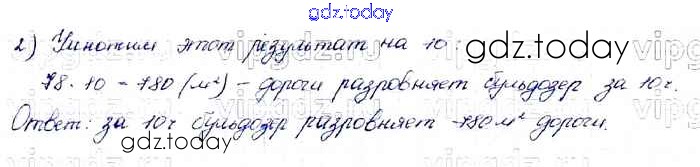 gdz.today
2) Умножим этот результат на 10:
gdz.today
78 · 10 = 780 (м²) – дороги разровняет бульдозер за 10 ч.
Ответ: за 10 ч бульдозер разровняет 780 м² дороги.
gdz.today